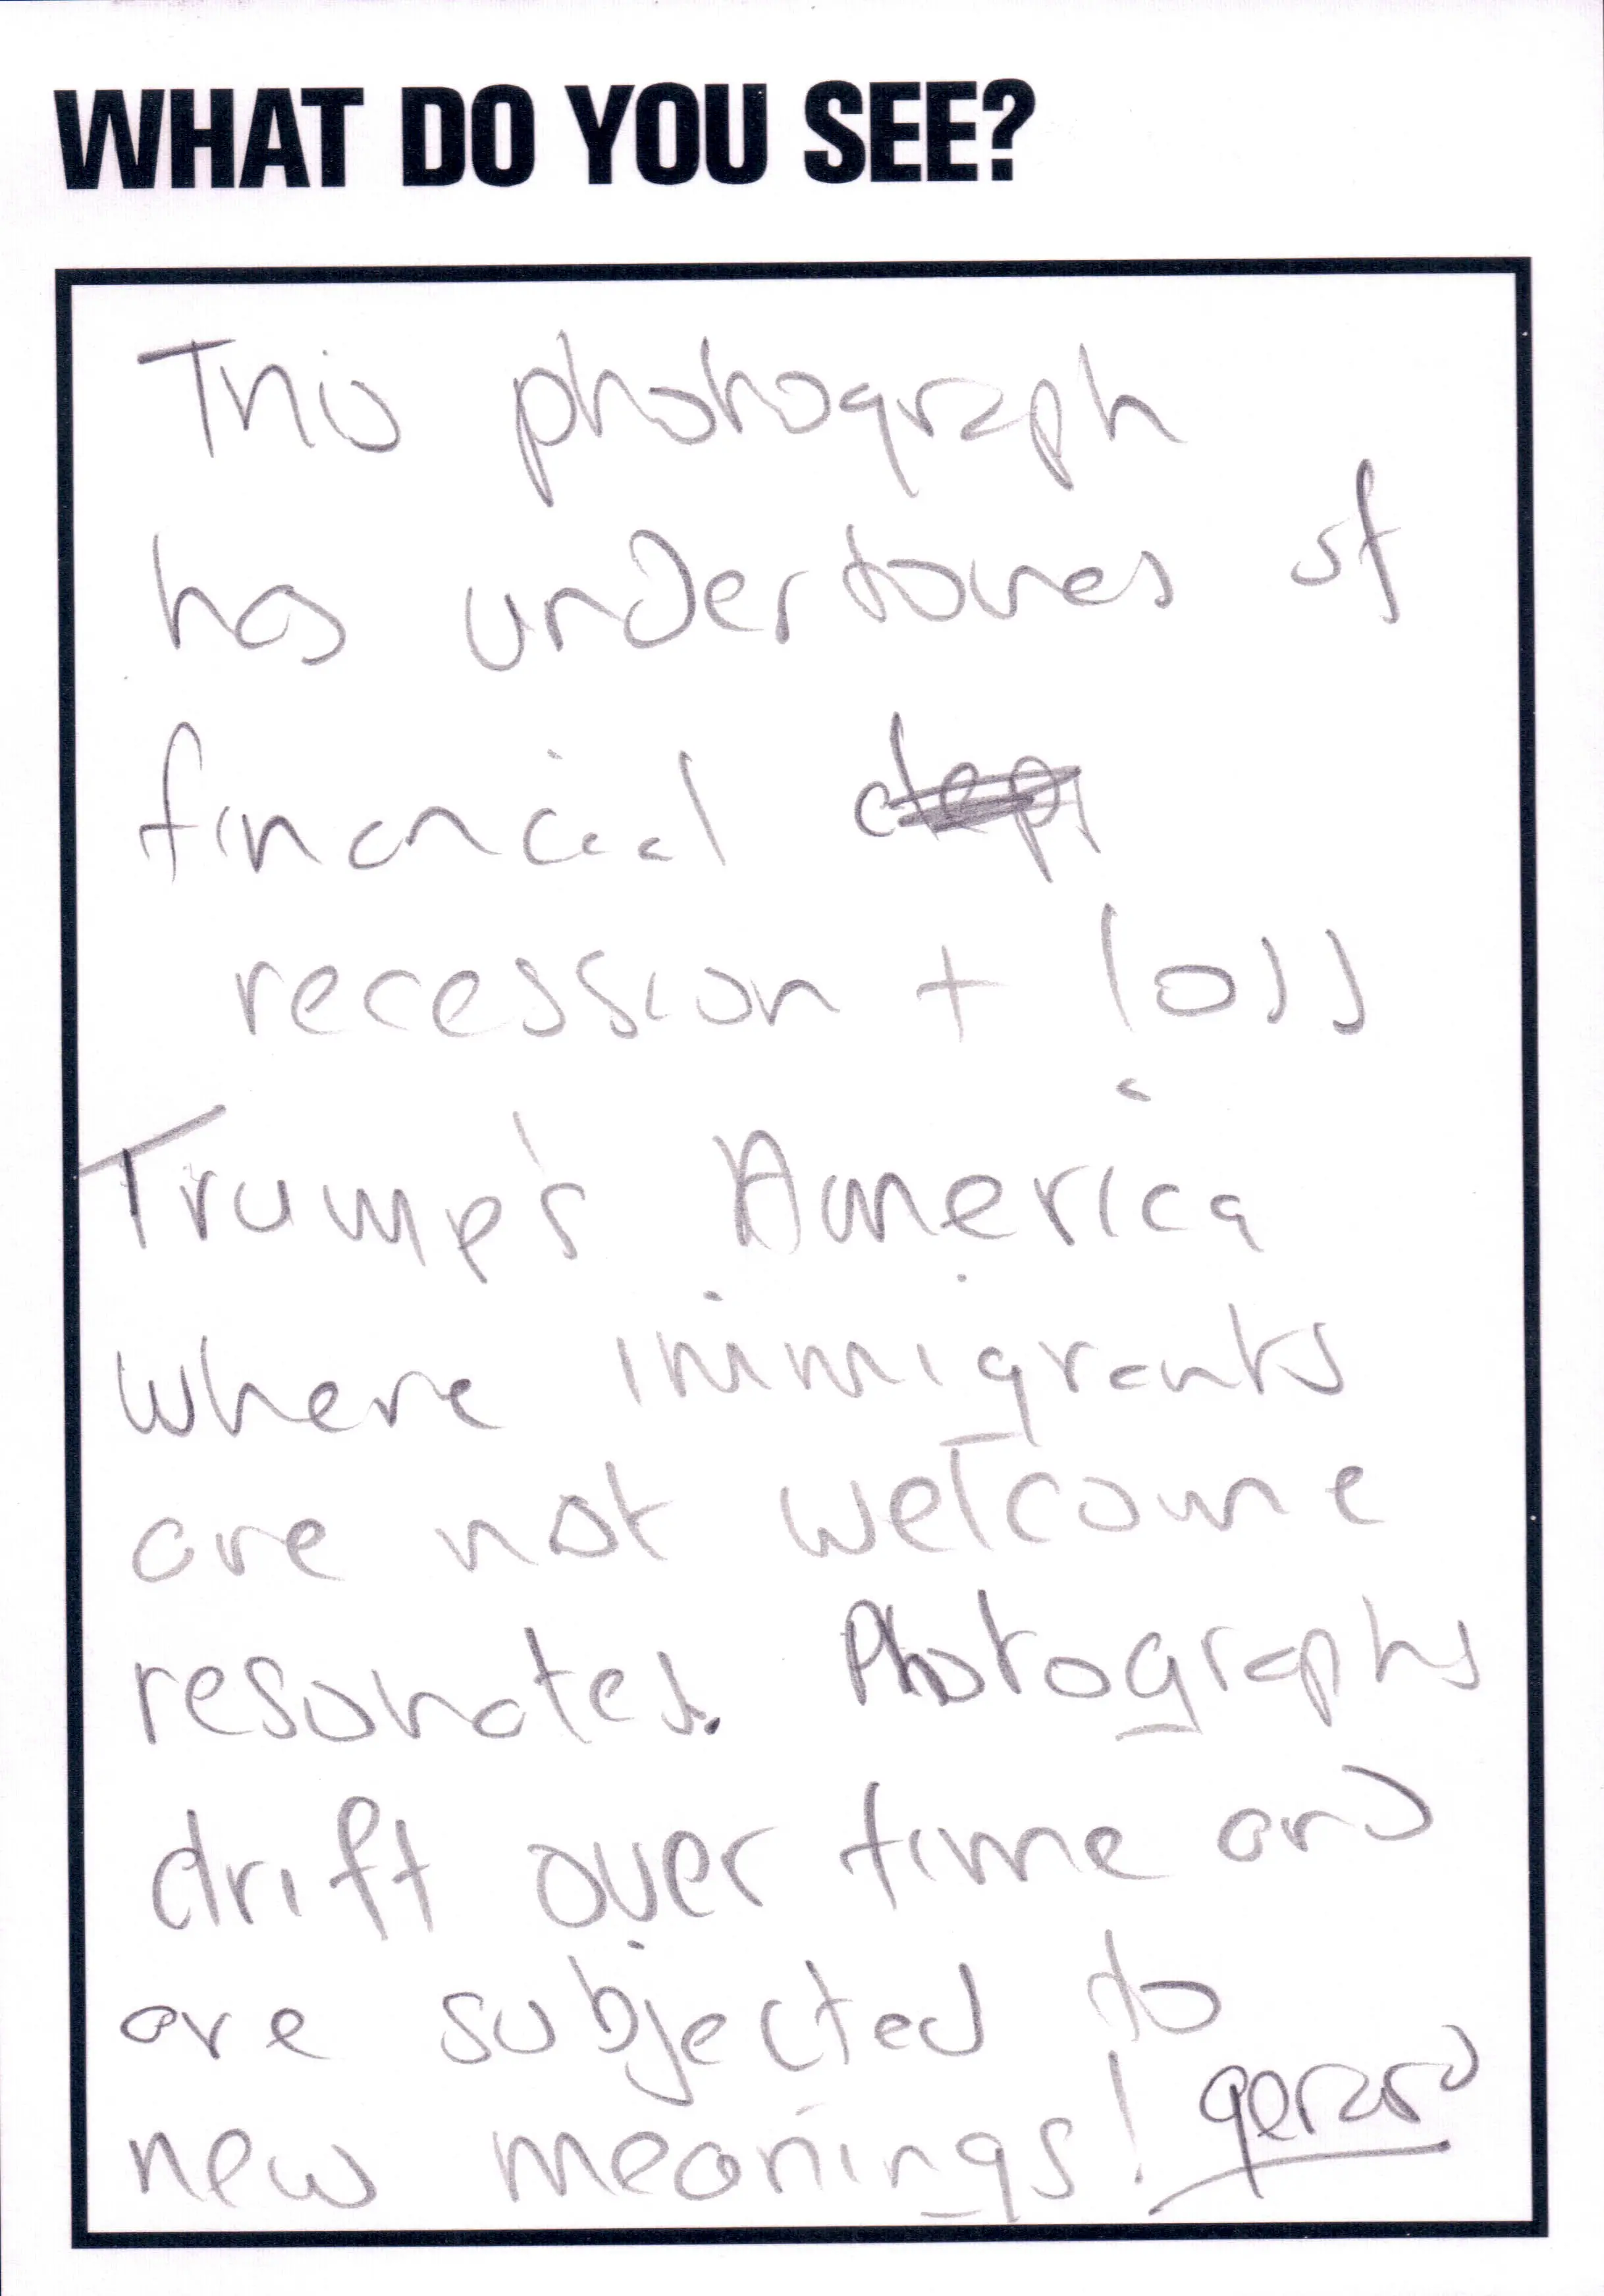 WHAT DO YOU SEE?
This photograph
has undertones of
financial
recession + loss
Trump's America
where immigrants
are not welcome
resonates. Photographs
drift over time and
are subjected to
new meanings! gerard